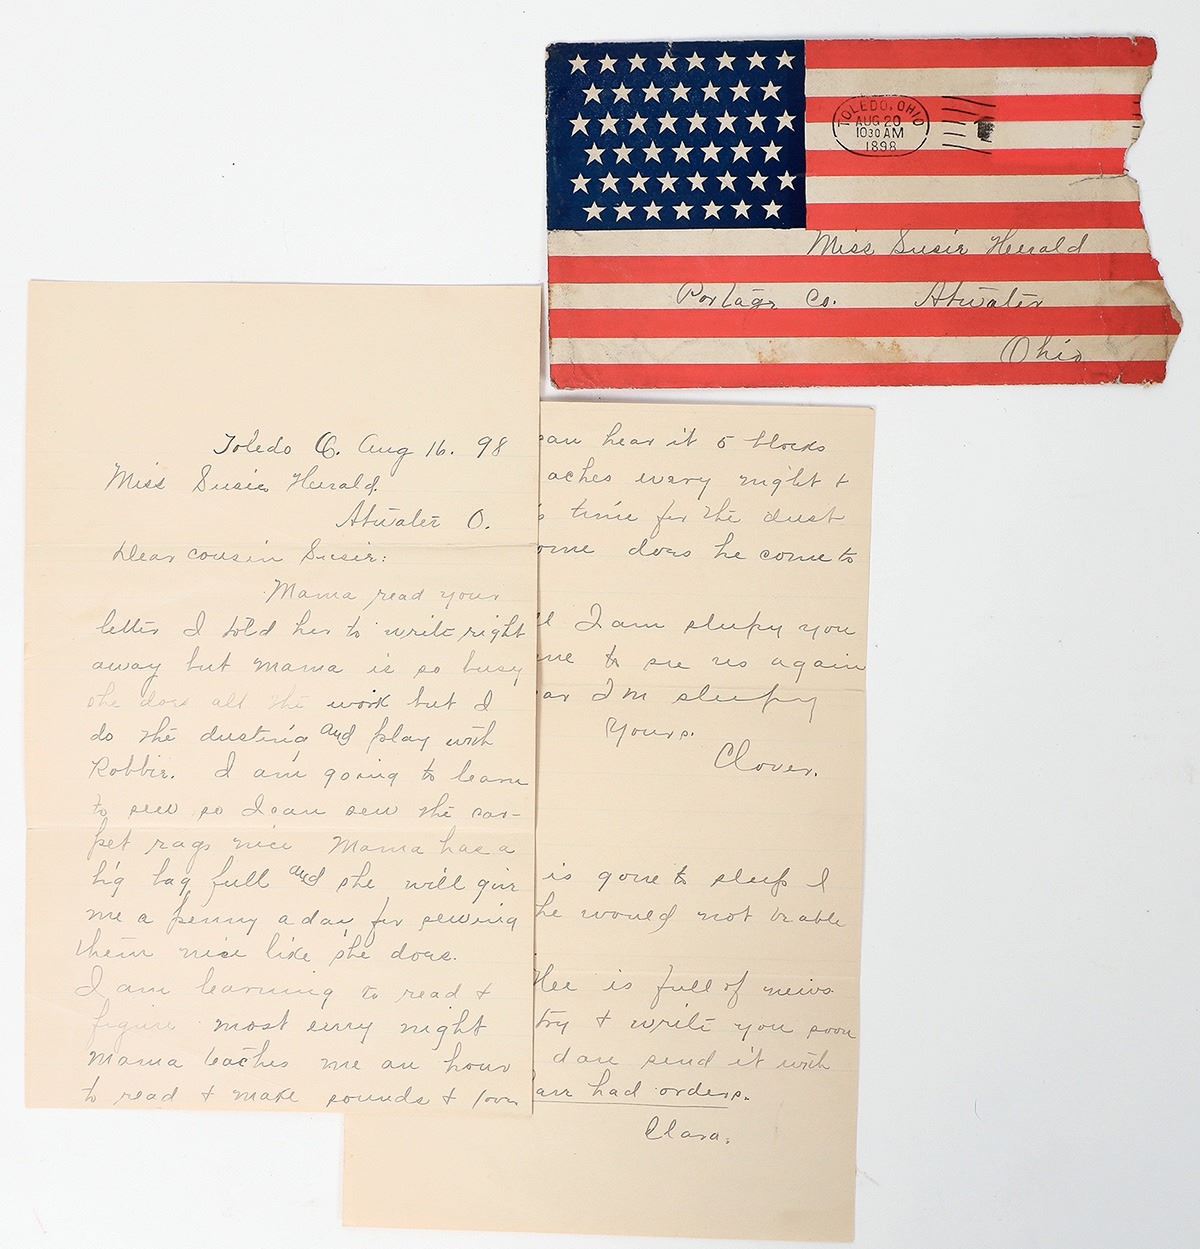 TOLEDO, OHIO
AUG 20
10 30 AM
1898
Miss Susie Herald
Portage Co. Atwater
Ohio
Toledo O. Aug 16. 98
Miss Susie Herald.
Atwater O.
Dear cousin Susie:
Mama read your
letter I told her to write right
away but mama is so busy
she does all the work but I
do the dusting and play with
Robbie. I am going to learn
to sew so I can sew the car-
pet rags nice Mama has a
big bag full and she will give
me a penny a day for sewing
them nice like she does.
I am learning to read +
figure most every night
Mama teaches me an hour
to read + make sounds +
can hear it 5 blocks
aches every night +
time for the dust
ome does he come to
ll I am sleepy you
me to see us again
ar I'm sleepy
Yours.
Clover.
is gone to sleep I
he would not be able
is full of news
try + write you soon
dare send it with
had orders.
Clara.